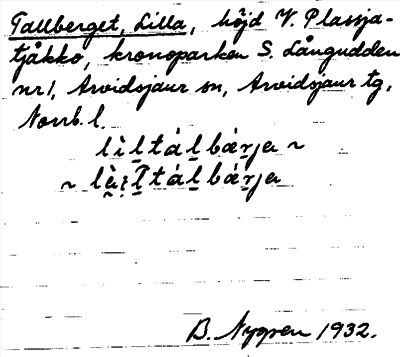 Tallberget, Lilla, höjd V. Plassja-
tjåkko, kronoparken S. Långudden
nr 1, Arvidsjaur sn, Arvidsjaur tg,
Norrb. l.
lìḻtáḻbáṟja ~
~ lèi̯ḻtáḻbáṟja
B. Nygren 1932.